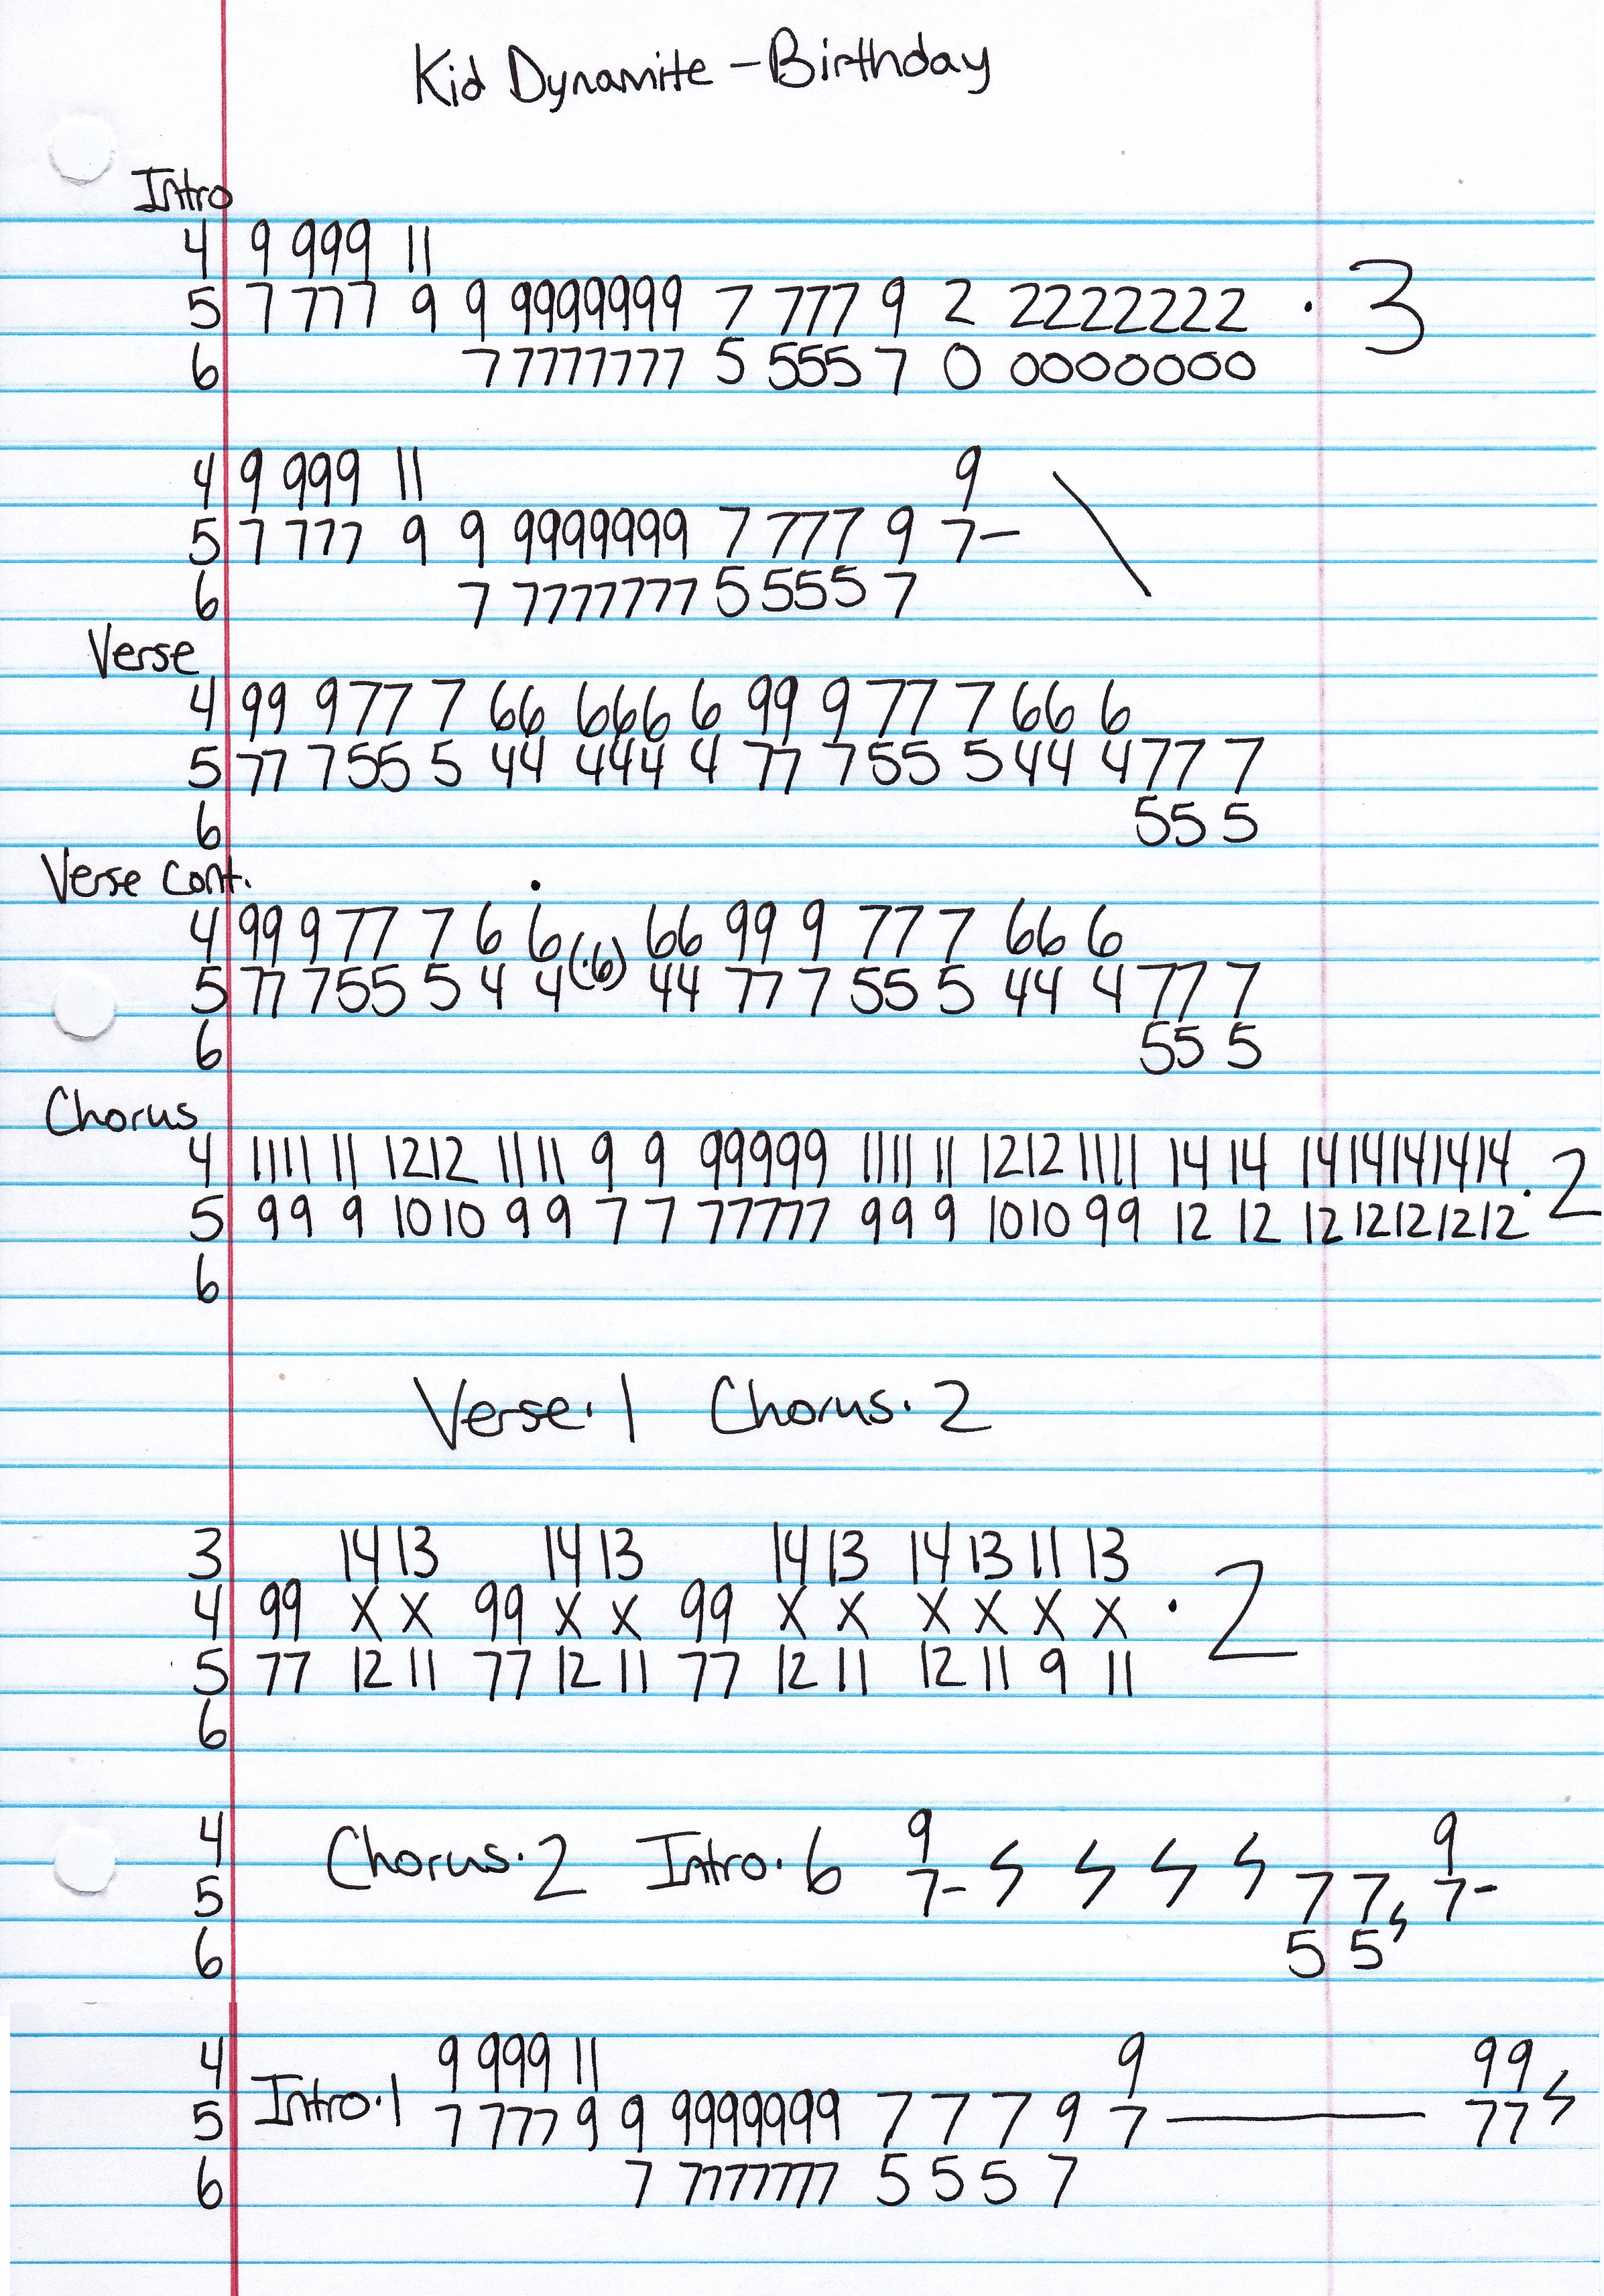 Kid Dynamite - Birthday
Intro
4 9 999 11
5 7 777 9 9 9999999 7 777 9 2 2222222 · 3
6 7 7777777 5 555 7 0 0000000
4 9 999 11 9
5 7 777 9 9 9999999 7 777 9 7- \
6 7 7777777 5 555 7
Verse
4 99 9 77 7 66 666 6 99 9 77 7 66 6
5 77 7 55 5 44 444 4 77 7 55 5 44 4 77 7
6 55 5
Verse Cont. ·
4 99 9 77 7 6 6 (·6) 66 99 9 77 7 66 6
5 77 7 55 5 4 4 44 77 7 55 5 44 4 77 7
6 55 5
Chorus
4 1111 11 1212 11 11 9 9 99999 1111 11 1212 1111 14 14 1414141414 · 2
5 99 9 1010 9 9 7 7 77777 99 9 1010 99 12 12 1212121212
6
Verse·1 Chorus·2
3 14 13 14 13 14 13 14 13 11 13
4 99 x x 99 x x 99 x x x x x x · 2
5 77 12 11 77 12 11 77 12 11 12 11 9 11
6
4 9 9
5 Chorus·2 Intro·6 7- 7 7 7-
6 5 5
4 9 999 11 9 99
5 Intro·1 7 777 9 9 9999999 7 7 7 9 7 — 77
6 7 7777777 5 5 5 7